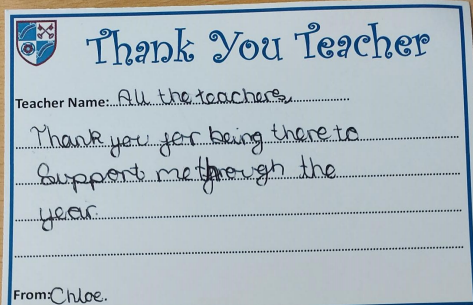 Thank You Teacher
Teacher Name: All the teachers
Thank you for being there to
Support me through the
year.
From: Chloe.